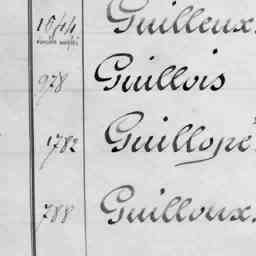 1644 Guilleux.
978 Guillois
1782 Guillopé
788 Guilloux.